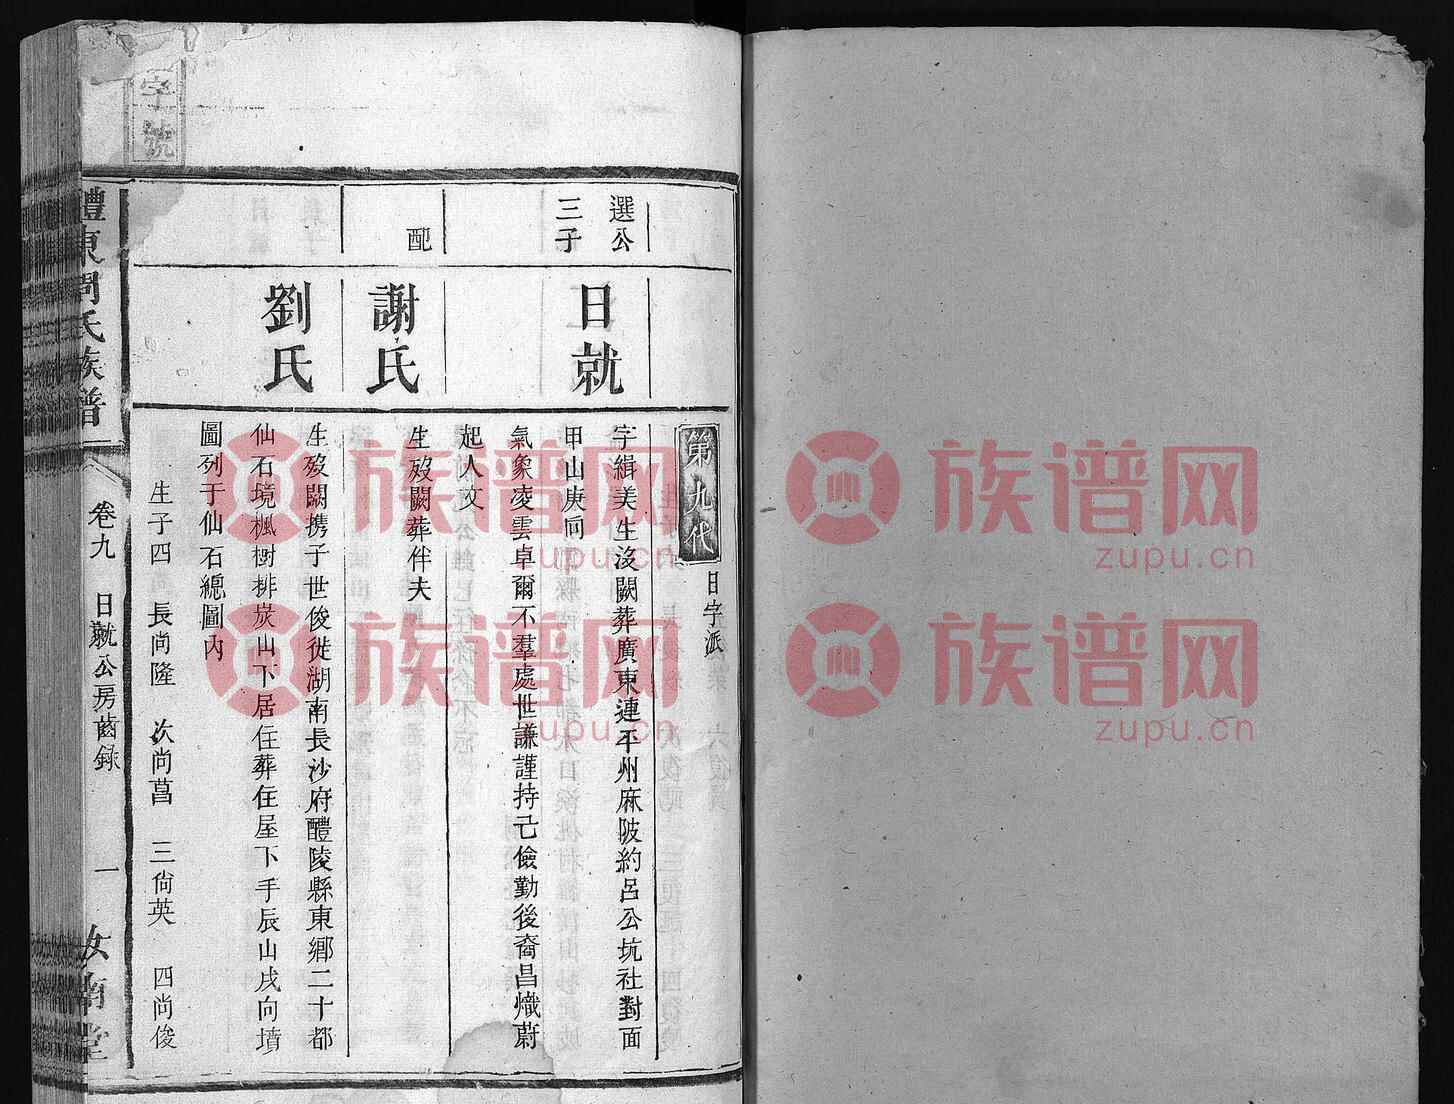 字號
第九代 日字派
選公
三子
日就
字緝美生沒闕葬廣東連平州麻陂約呂公坑社對面
甲山庚向
氣象凌雲卓爾不羣處世謙謹持己儉勤後裔昌熾蔚
起人文
配
謝氏
生歿闕葬伴夫
劉氏
生歿闕携子世俊從湖南長沙府醴陵縣東鄉二十都
仙石境楓樹排炭山下居住葬住屋下手辰山戌向墳
圖列于仙石總圖內
生子四 長尚隆 次尚菖 三尚英 四尚俊
醴東周氏族譜 卷九 日就公房齒録 一 汝南堂
族谱网
zupu.cn
族谱网
zupu.cn
族谱网
zupu.cn
族谱网
zupu.cn